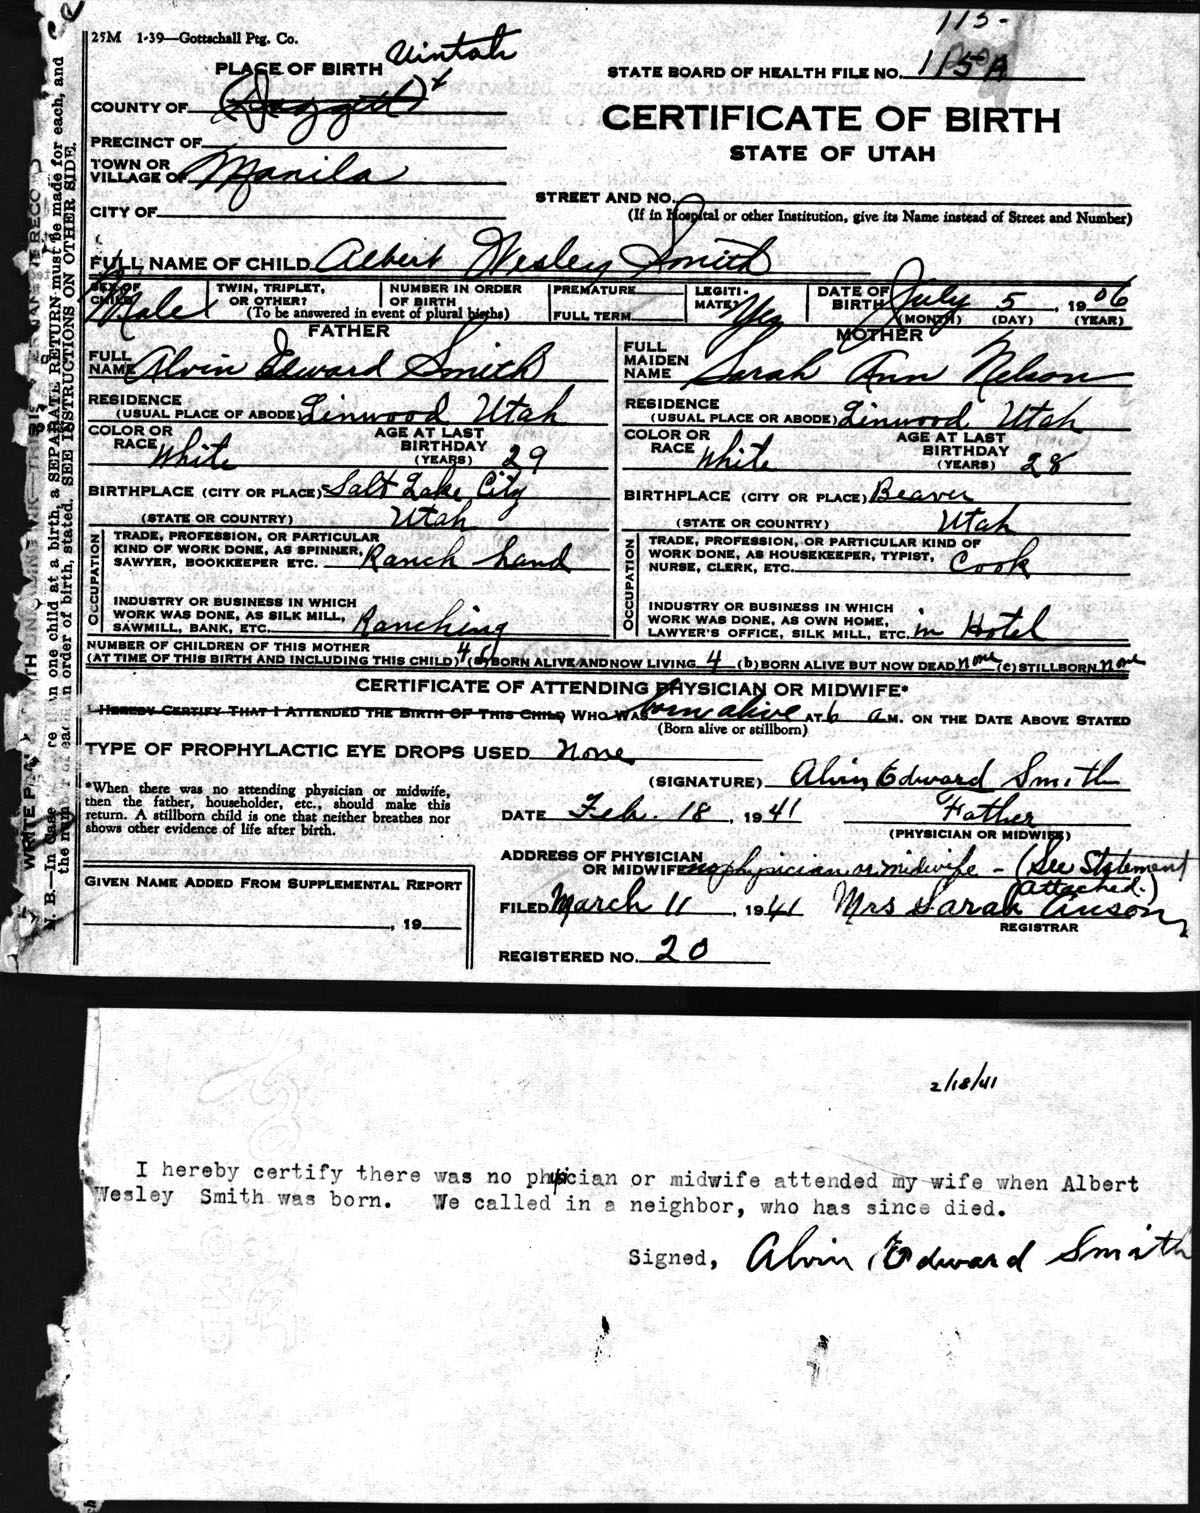 115-
25M 1-39—Gottschall Ptg. Co.
Uintah
PLACE OF BIRTH
STATE BOARD OF HEALTH FILE NO. 115A
COUNTY OF (Daggett)
CERTIFICATE OF BIRTH
PRECINCT OF
STATE OF UTAH
TOWN OR VILLAGE OF Manila
STREET AND NO.
CITY OF
(If in Hospital or other Institution, give its Name instead of Street and Number)
FULL NAME OF CHILD Albert Wesley Smith
SEX OF CHILD Male
TWIN, TRIPLET, OR OTHER?
NUMBER IN ORDER OF BIRTH
(To be answered in event of plural births)
PREMATURE
FULL TERM
LEGITI-MATE? Yes
DATE OF BIRTH July 5, 1906
(MONTH) (DAY) (YEAR)
FATHER
FULL NAME Alvin Edward Smith
RESIDENCE
(USUAL PLACE OF ABODE) Linwood Utah
COLOR OR RACE White
AGE AT LAST BIRTHDAY (YEARS) 29
BIRTHPLACE (CITY OR PLACE) Salt Lake City
(STATE OR COUNTRY) Utah
OCCUPATION
TRADE, PROFESSION, OR PARTICULAR
KIND OF WORK DONE, AS SPINNER,
SAWYER, BOOKKEEPER ETC. Ranch hand
INDUSTRY OR BUSINESS IN WHICH
WORK WAS DONE, AS SILK MILL,
SAWMILL, BANK, ETC. Ranching
MOTHER
FULL MAIDEN NAME Sarah Ann Nelson
RESIDENCE
(USUAL PLACE OR ABODE) Linwood Utah
COLOR OR RACE White
AGE AT LAST BIRTHDAY (YEARS) 28
BIRTHPLACE (CITY OR PLACE) Beaver
(STATE OR COUNTRY) Utah
OCCUPATION
TRADE, PROFESSION, OR PARTICULAR KIND OF
WORK DONE, AS HOUSEKEEPER, TYPIST,
NURSE, CLERK, ETC. Cook
INDUSTRY OR BUSINESS IN WHICH
WORK WAS DONE, AS OWN HOME,
LAWYER'S OFFICE, SILK MILL, ETC. in Hotel
NUMBER OF CHILDREN OF THIS MOTHER
(AT TIME OF THIS BIRTH AND INCLUDING THIS CHILD) 4 (a) BORN ALIVE AND NOW LIVING 4 (b) BORN ALIVE BUT NOW DEAD none (c) STILLBORN none
CERTIFICATE OF ATTENDING PHYSICIAN OR MIDWIFE*
I HEREBY CERTIFY THAT I ATTENDED THE BIRTH OF THIS CHILD WHO WAS born alive AT 6 a M. ON THE DATE ABOVE STATED
(Born alive or stillborn)
TYPE OF PROPHYLACTIC EYE DROPS USED none
*When there was no attending physician or midwife,
then the father, householder, etc., should make this
return. A stillborn child is one that neither breathes nor
shows other evidence of life after birth.
(SIGNATURE) Alvin Edward Smith
DATE Feb. 18, 1941 Father
(PHYSICIAN OR MIDWIFE)
ADDRESS OF PHYSICIAN
OR MIDWIFE no physician or midwife - (See Statement
attached.)
GIVEN NAME ADDED FROM SUPPLEMENTAL REPORT
, 19
FILED March 11, 1941 Mrs Sarah Anson
REGISTRAR
REGISTERED NO. 20
N. B.—In Case one child at a birth, a SEPARATE RETURN must be made for each, and
the num order of birth, stated. SEE INSTRUCTIONS ON OTHER SIDE.
2/18/41
I hereby certify there was no physician or midwife attended my wife when Albert
Wesley Smith was born. We called in a neighbor, who has since died.
Signed, Alvin Edward Smith